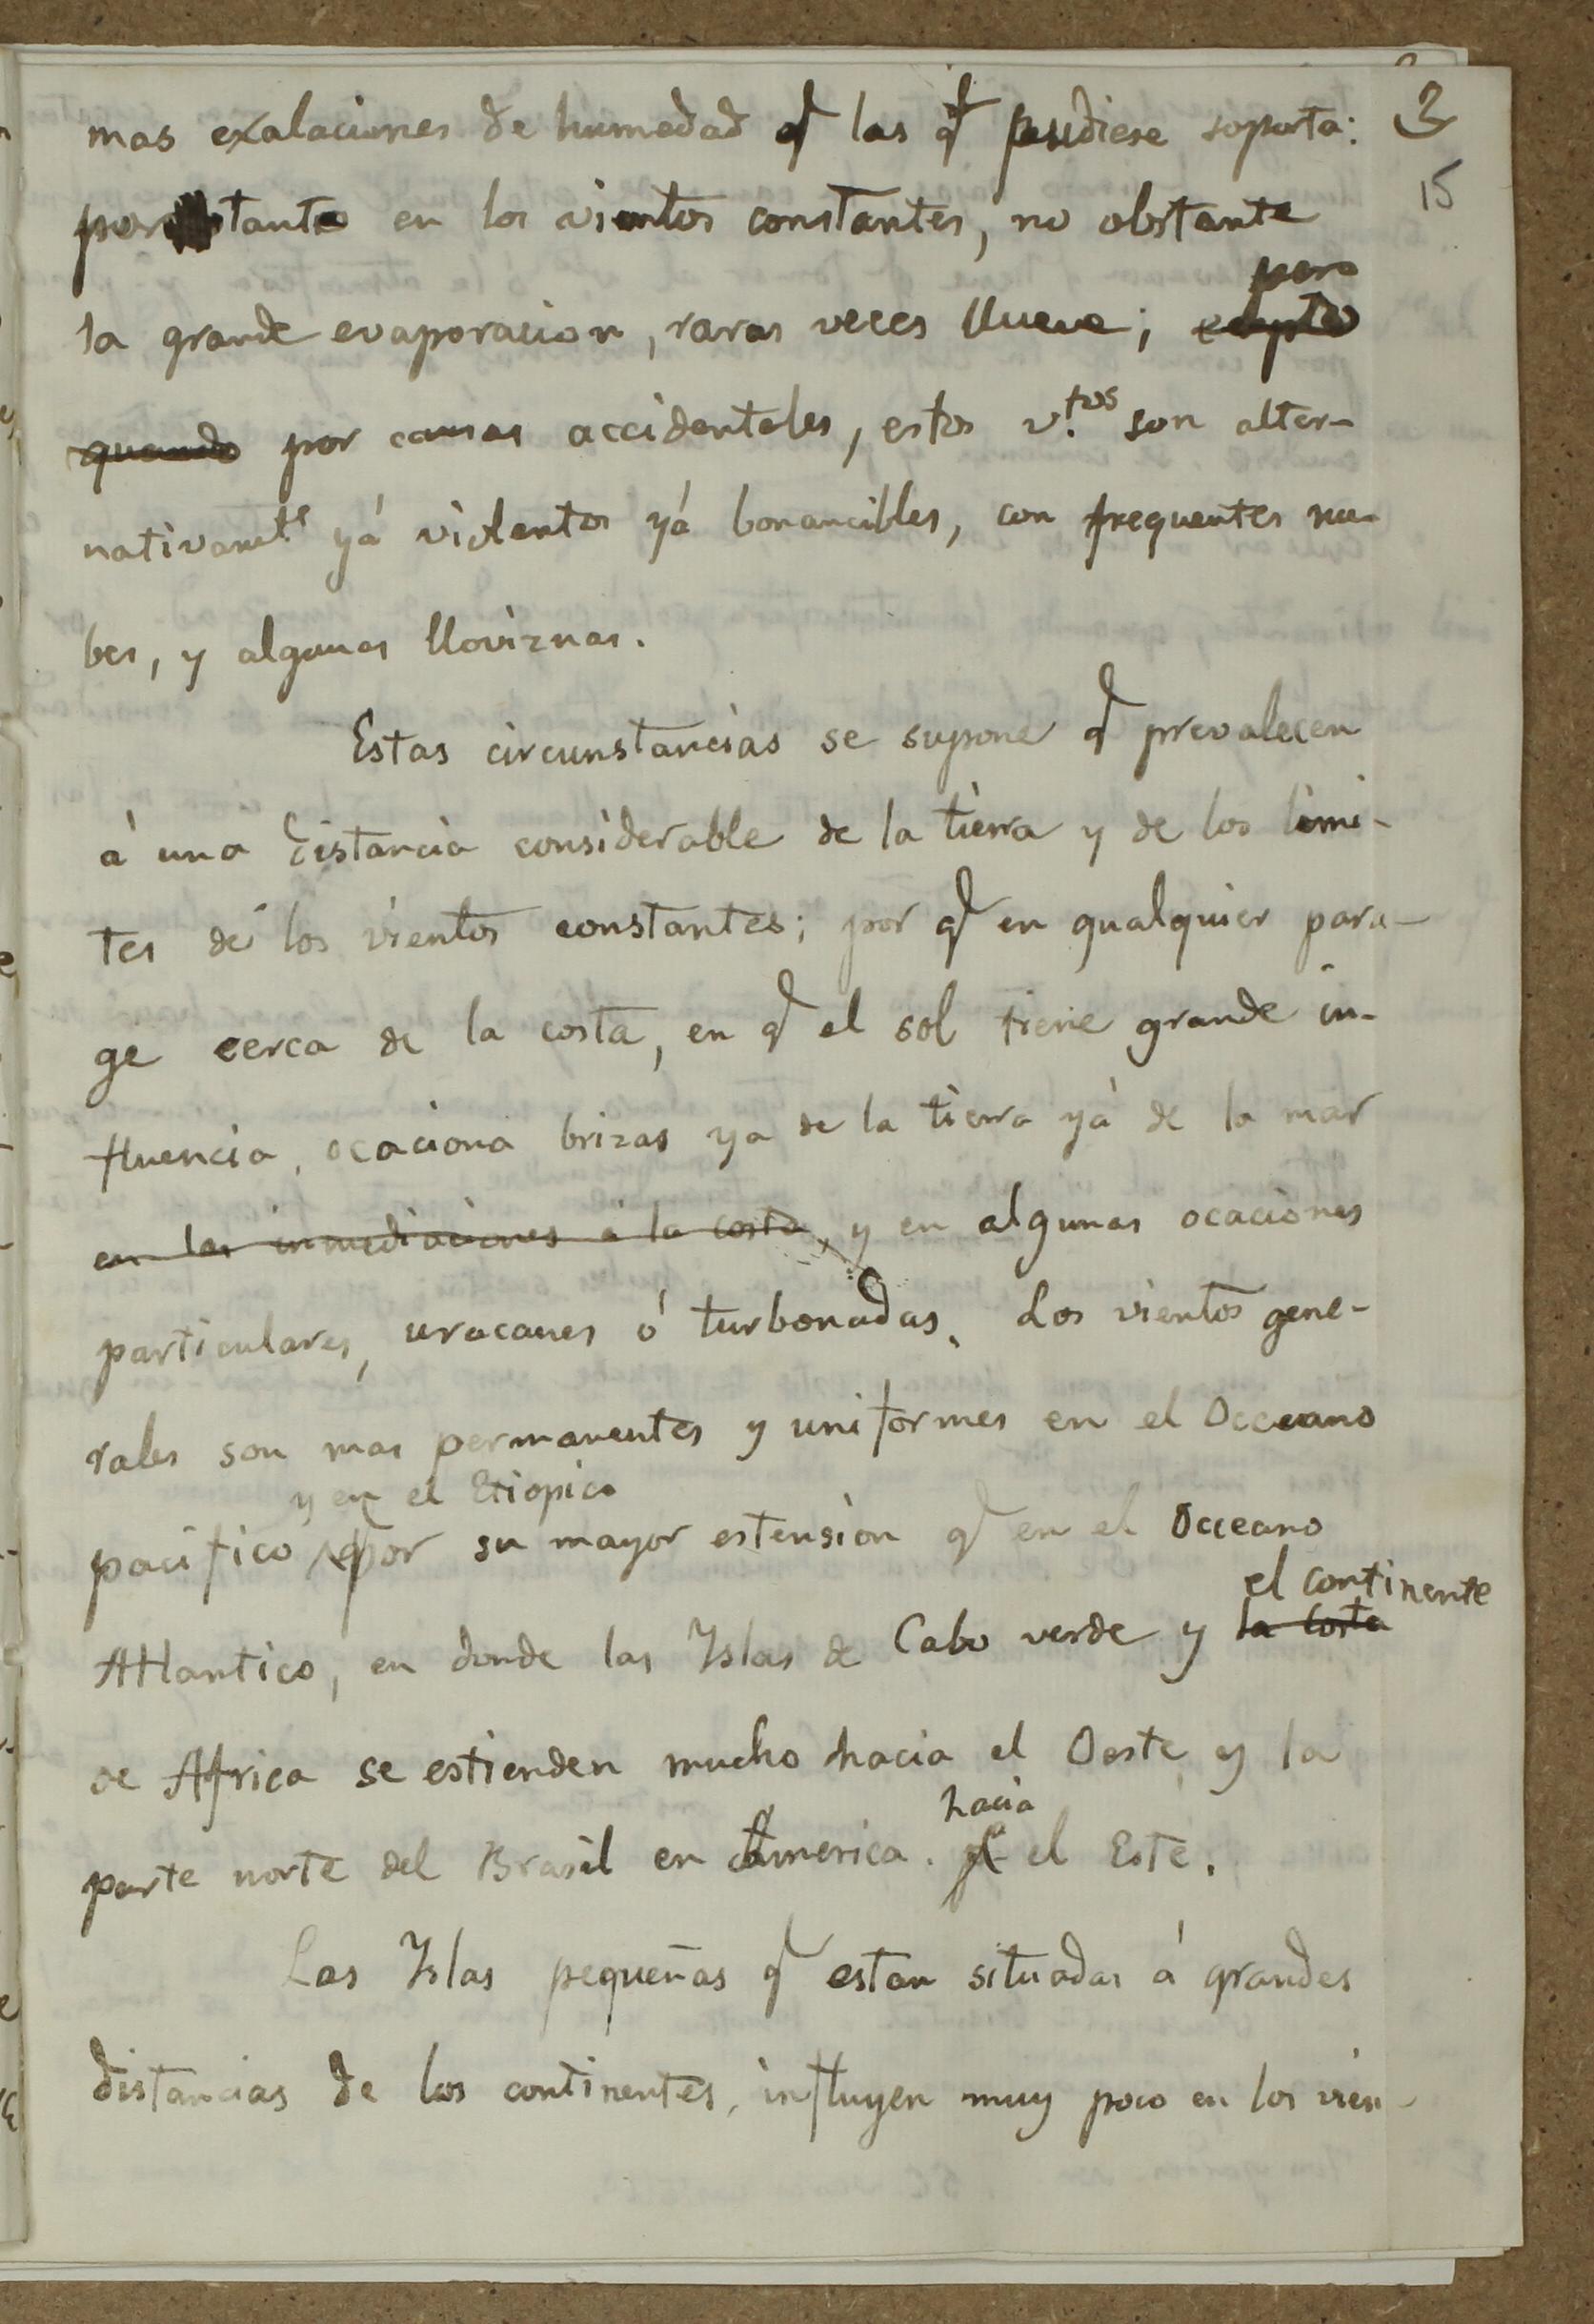 3
15
mas exalaciones de humedad q̃ las q̃ pudiese soporta:
por tanto en los vientos constantes, no obstante
pero
la grande evaporacion, raras veces llueve; ecepto
quando por causas accidentales, estos v.tos son alter-
nativamte yá violentos yá bonancibles, con frequentes nu-
bes, y algunas lloviznas.
Estas circunstancias se supone q̃ prevalecen
á una distancia considerable de la tierra y de los limi-
tes de los vientos constantes; por q̃ en qualquier para-
ge cerca de la costa, en q̃ el sol tiene grande in-
fluencia, ocaciona brizas ya de la tierra yá de la mar
en las inmediaciones á la costa, y en algunas ocaciones
particulares, uracanes ó turbonadas. Los vientos gene-
rales son mas permanentes y uniformes en el Occeano
y en el Etiopico
pacifico por su mayor estension q̃ en el Occeano
el continente
Atlantico, en donde las Yslas de Cabo verde y la costa
de Africa se estienden mucho hacia el Oeste, y la
hacia
parte norte del Brasil en America. el Este.
Las Yslas pequeñas q̃ estan situadas á grandes
distancias de los continentes, influyen muy poco en los vien-